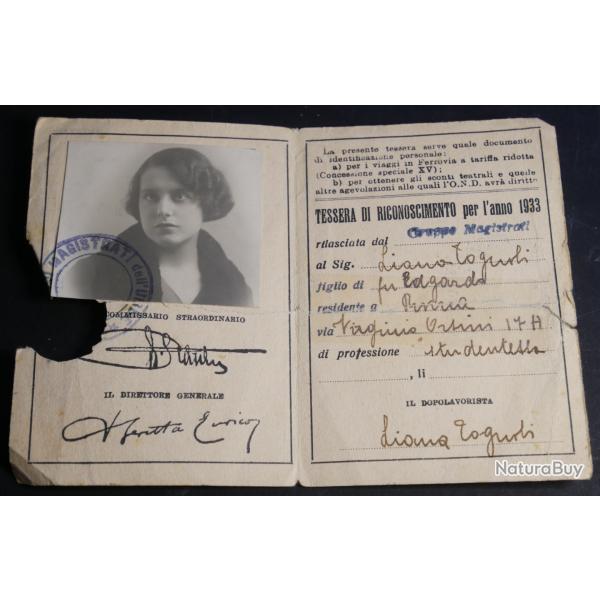 MAGISTRATI dell'U
COMMISSARIO STRAORDINARIO
IL DIRETTORE GENERALE
Beretta Enrico
La presente tessera serve quale documento
di identificazione personale:
a) per i viaggi in Ferrovia a tariffa ridotta
(Concessione speciale XV);
b) per ottenere gli sconti teatrali e quelle
altre agevolazioni alle quali l'O.N.D. avrà diritto
TESSERA DI RICONOSCIMENTO per l'anno 1933
rilasciata dal Gruppo Magistrati
al Sig. Liana Tognoli
figlio di fu Edgardo
residente a
via Virginio Orsini 17A
di professione studentessa
, li
IL DOPOLAVORISTA
Liana Tognoli
NaturaBuy